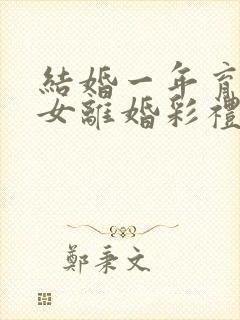 結婚一年育
女離婚彩禮
鄭秉文